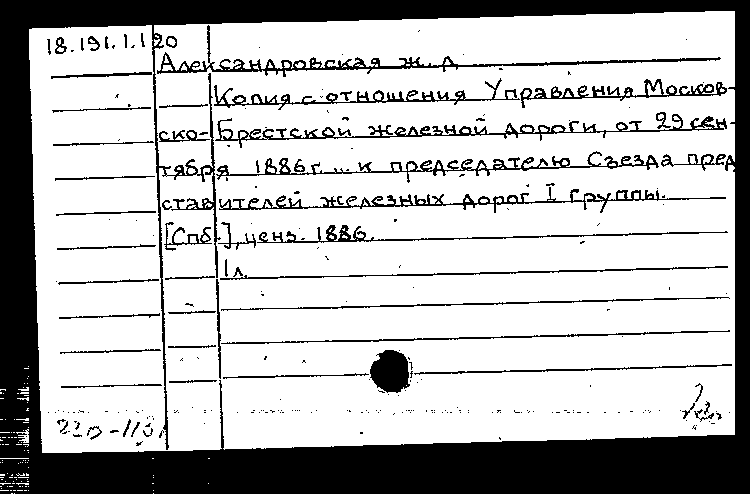 18.191.1.120
Александровская ж. д.
Копия с отношения Управления Москов-
ско-Брестской железной дороги, от 29 сен-
тября 1886 г. ... к председателю Съезда пред
ставителей железных дорог I группы.
[Спб.], ценз. 1886.
1 л.